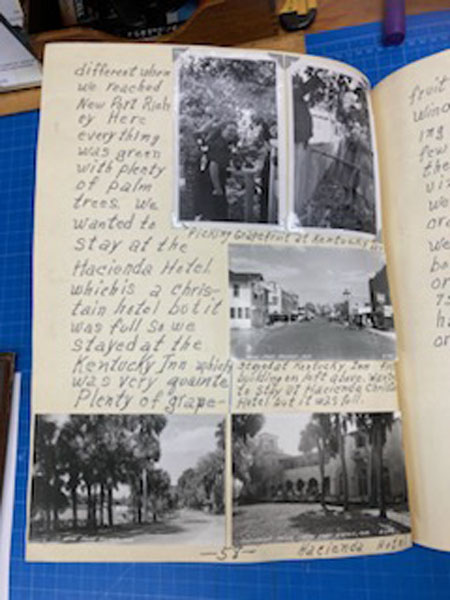 different when
we reached
New Port Rich-
ey Here
everything
was green
with plenty
of palm
trees. We
wanted to
stay at the
Hacienda Hotel
which is a chris-
tain hotel but it
was full so we
stayed at the
Kentucky Inn which
was very quainte
Plenty of grape-
Picking Grapefruit at Kentucky
stayed at Kentucky Inn
building on left above. Wanted
to stay at Hacienda Christian
Hotel but it was full.
-58-
Hacienda Hotel
fruit
ing
few
the
we
or